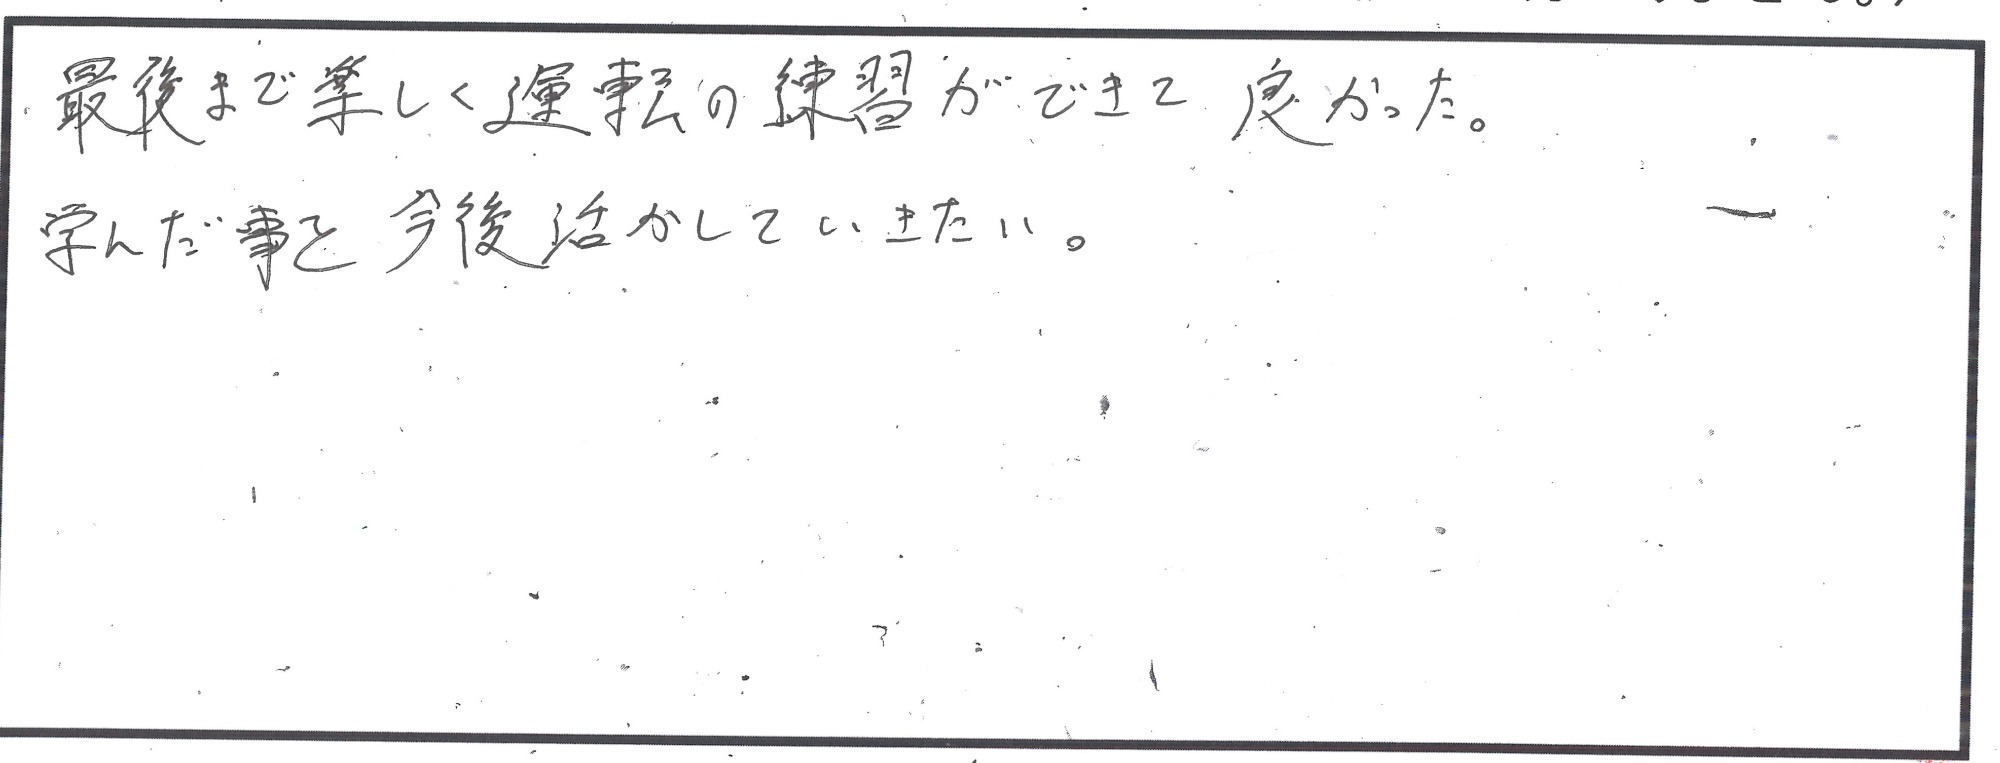 最後まで楽しく運転の練習ができて良かった。
学んだ事を今後活かしていきたい。